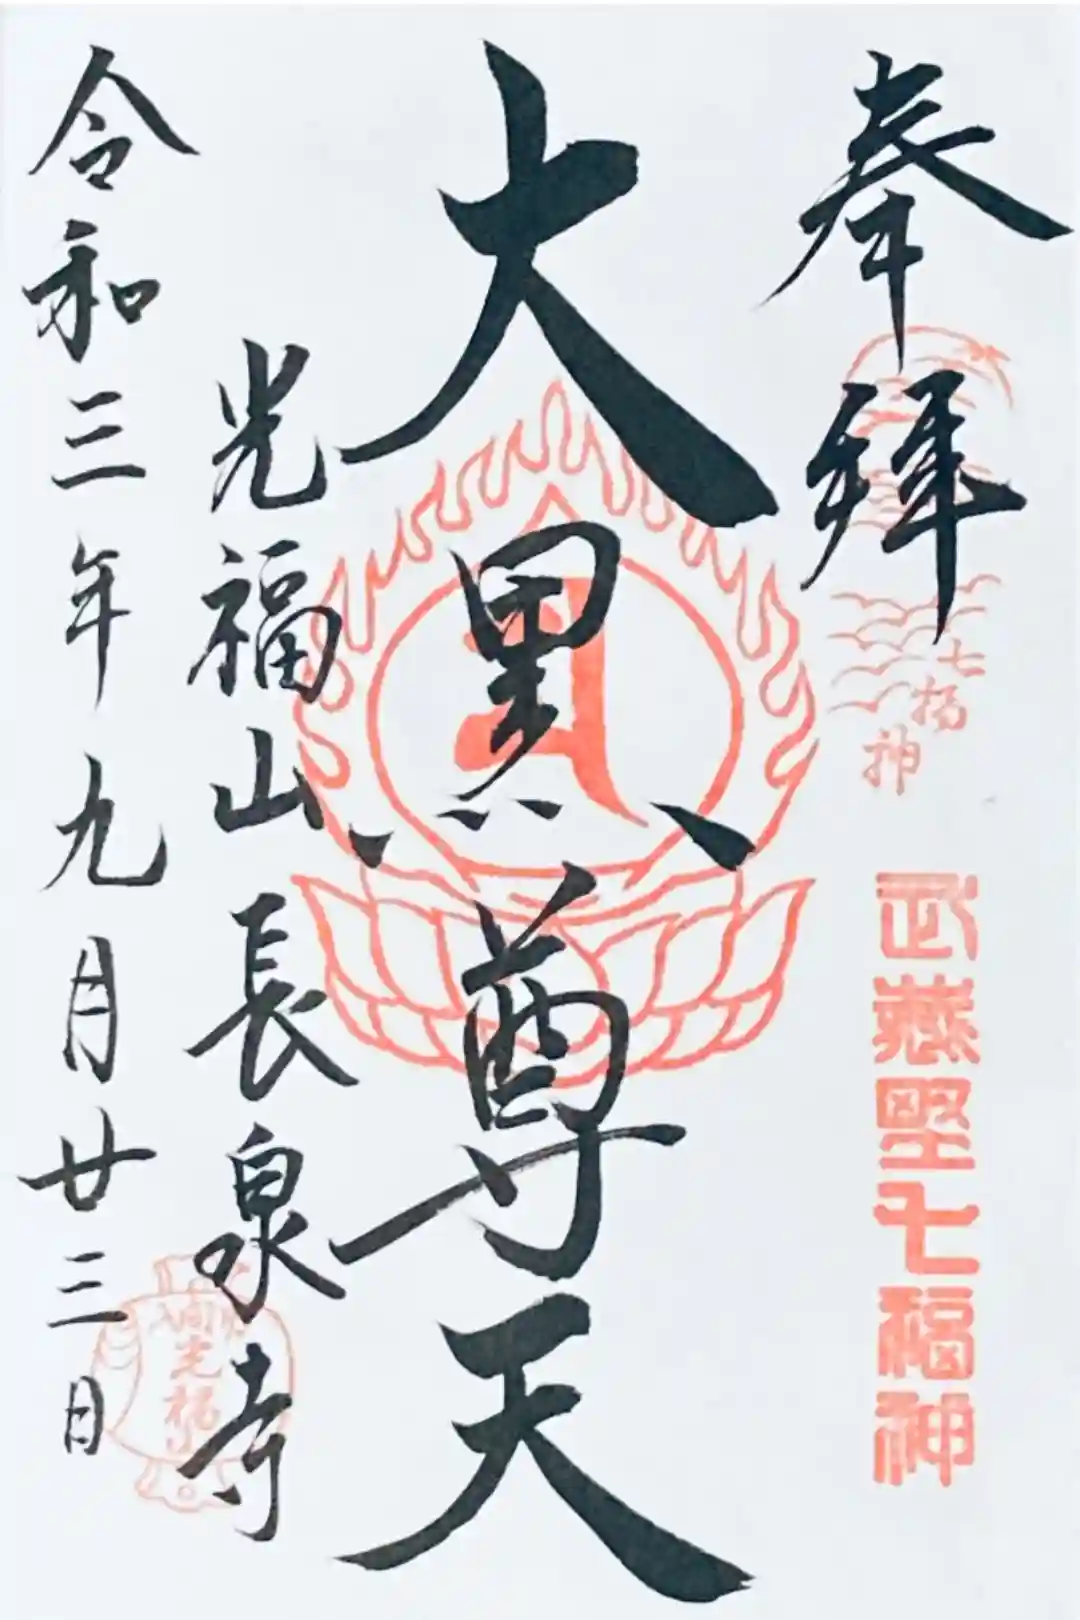 奉拜
七福神
武蔵野七福神
大黒尊天
光福山長泉寺
令和三年九月廿三日